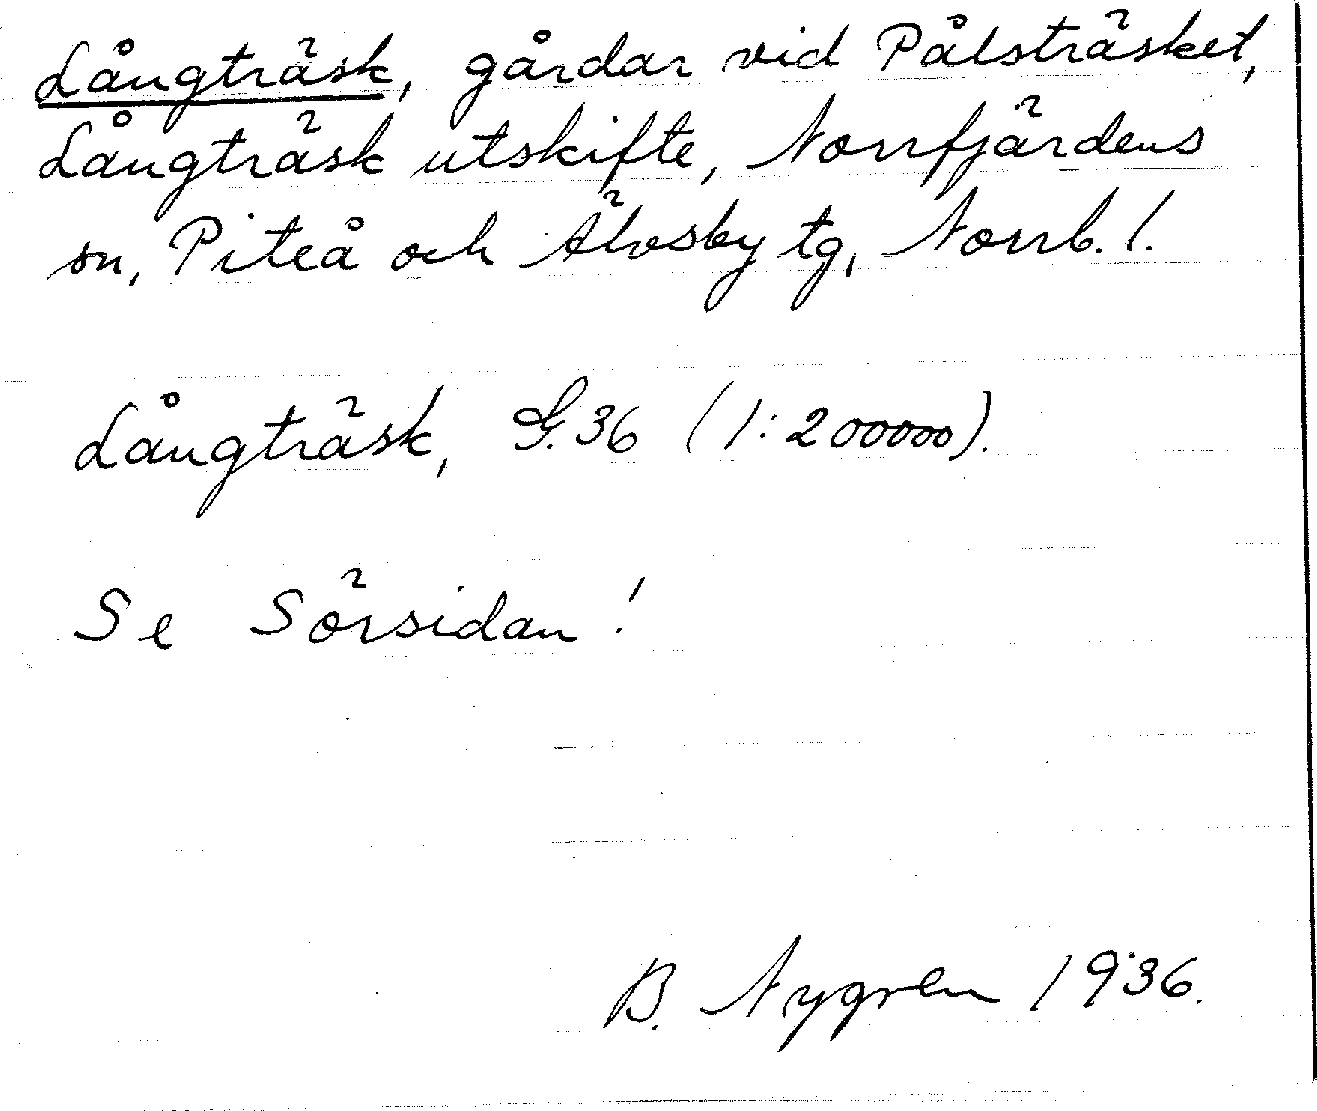 Långträsk, gårdar vid Pålsträsket,
Långträsk utskifte, Norrfjärdens
sn, Piteå och Älvsby tg, Norrb. l.
Långträsk, G. 36 (1:200000).
Se Sörsidan!
B. Nygren 1936.